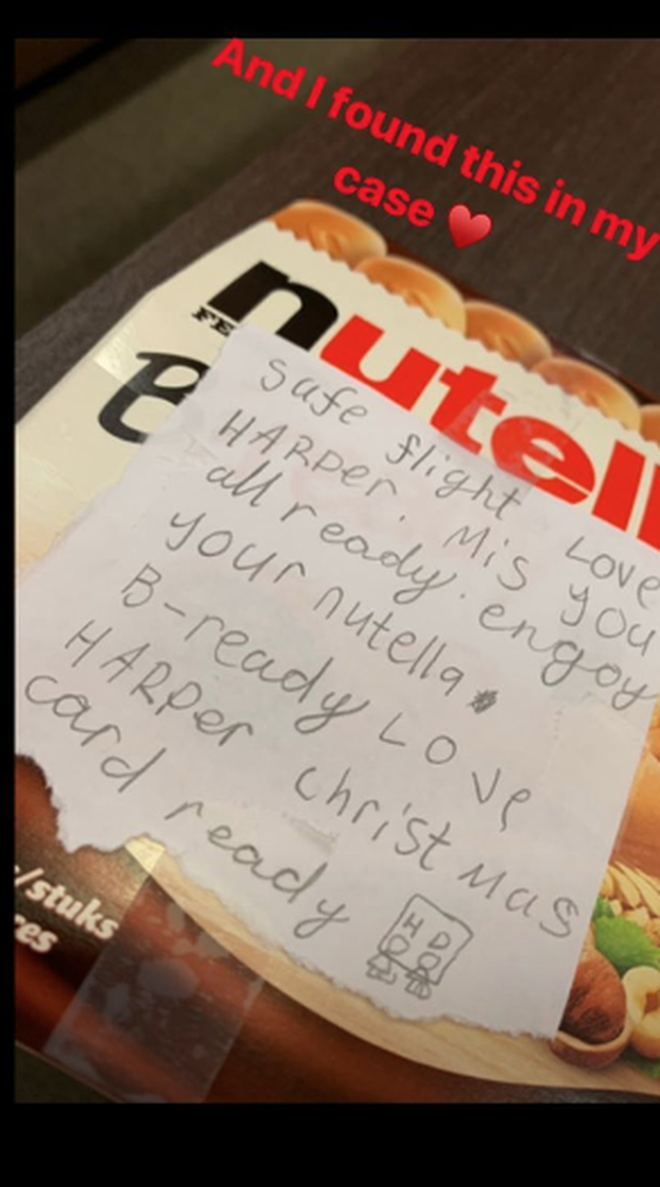 And I found this in my
case ❤️
nutell
FE
B
safe flight Love
HARPer. Mis you
all ready. engoy
your nutella
B-ready LOVe
HARPer christmas
card ready
H D
/stuks
res